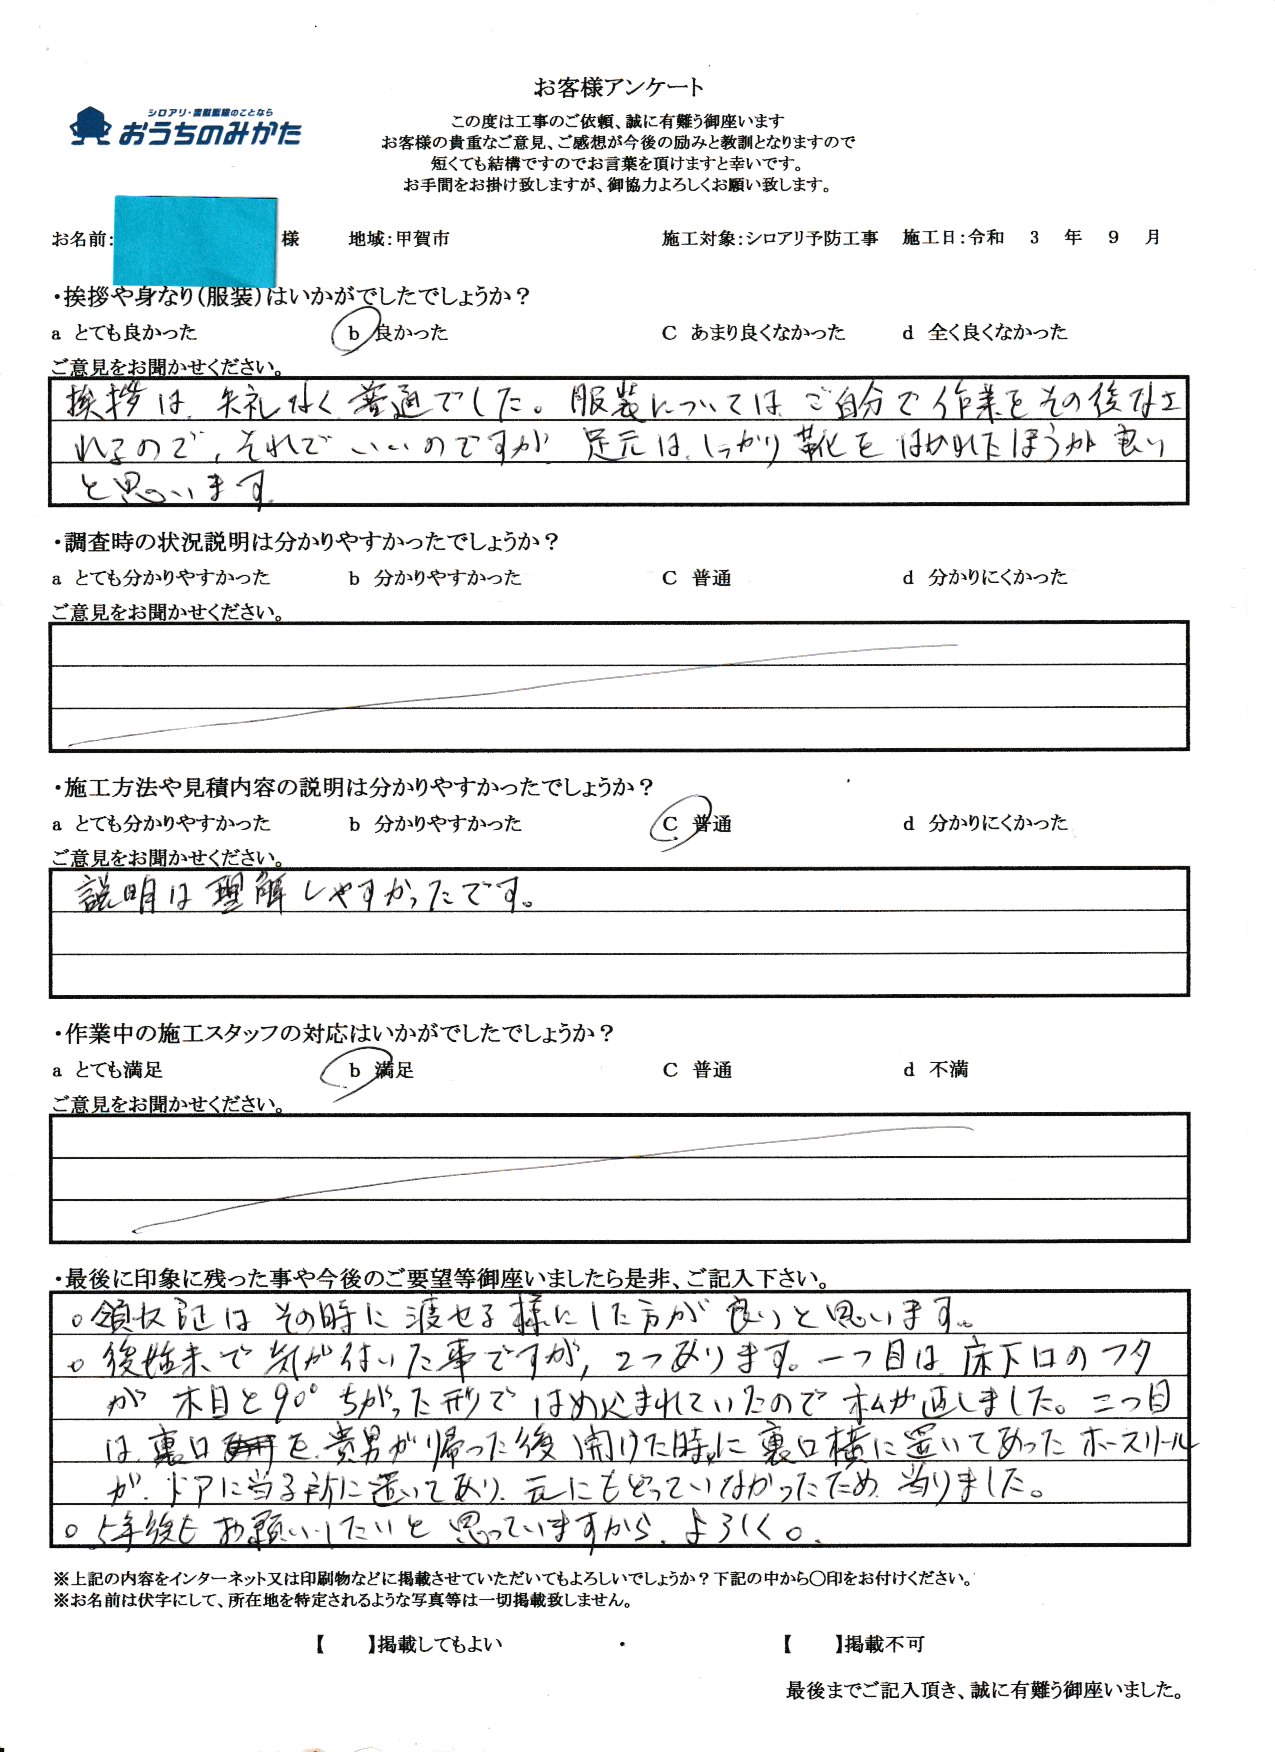 お客様アンケート
シロアリ・害獣駆除のことなら
おうちのみかた
この度は工事のご依頼、誠に有難う御座います
お客様の貴重なご意見、ご感想が今後の励みと教訓となりますので
短くても結構ですのでお言葉を頂けますと幸いです。
お手間をお掛け致しますが、御協力よろしくお願い致します。
お名前: 様 地域:甲賀市 施工対象:シロアリ予防工事 施工日:令和 3 年 9 月
・挨拶や身なり(服装)はいかがでしたでしょうか?
a とても良かった b 良かった C あまり良くなかった d 全く良くなかった
ご意見をお聞かせください。
挨拶は、失礼なく普通でした。服装については、ご自分で作業をその後なさ
れるので、それでいいのですが、足元は、しっかり靴をはかれたほうが良い
と思います。
・調査時の状況説明は分かりやすかったでしょうか?
a とても分かりやすかった b 分かりやすかった C 普通 d 分かりにくかった
ご意見をお聞かせください。
・施工方法や見積内容の説明は分かりやすかったでしょうか?
a とても分かりやすかった b 分かりやすかった C 普通 d 分かりにくかった
ご意見をお聞かせください。
説明は理解しやすかったです。
・作業中の施工スタッフの対応はいかがでしたでしょうか?
a とても満足 b 満足 C 普通 d 不満
ご意見をお聞かせください。
・最後に印象に残った事や今後のご要望等御座いましたら是非、ご記入下さい。
○領収証はその時に渡せる様にした方が良いと思います。
○後始末で気が付いた事ですが、2つあります。一つ目は、床下口のフタ
が木目と90°ちがった形ではめ込まれていたので私が直しました。二つ目
は、裏口を、貴男が帰った後、開けた時に裏口横に置いてあったホースリール
が、ドアに当る所に置いてあり、元にもどっていなかったため、当りました。
○5年後もお願いしたいと思っていますから、よろしく。
※上記の内容をインターネット又は印刷物などに掲載させていただいてもよろしいでしょうか?下記の中から〇印をお付けください。
※お名前は伏字にして、所在地を特定されるような写真等は一切掲載致しません。
【 】掲載してもよい ・ 【 】掲載不可
最後までご記入頂き、誠に有難う御座いました。